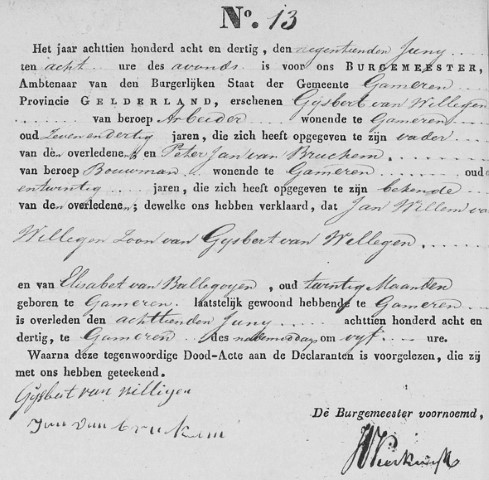 No. 13
Het jaar achttien honderd acht en dertig, den negentienden Juny
ten acht ure des avonds is voor ons BURGEMEESTER,
Ambtenaar van den Burgerlijken Staat der Gemeente Gameren
Provincie GELDERLAND, erschenen Gysbert van Willegen
van beroep Arbeider wonende te Gameren
oud Zevenendertig jaren, die zich heeft opgegeven te zijn vader
van den overledene; en Peter Jan van Bruchem
van beroep Bouwman wonende te Gameren oud
entwintig jaren, die zich heeft opgegeven te zijn bekende
van den overledene; dewelke ons hebben verklaard, dat Jan Willem van
Willegen Zoon van Gysbert van Willegen
en van Elisabet van Ballegoyen, oud twintig Maanden
geboren te Gameren. laatstelijk gewoond hebbende te Gameren
is overleden den achttienden Juny achttien honderd acht en
dertig, te Gameren des namiddags om vyf ure.
Waarna deze tegenwoordige Dood-Acte aan de Declaranten is voorgelezen, die zij
met ons hebben geteekend.
Gijsbert van Willigen
De Burgemeester voornoemd,